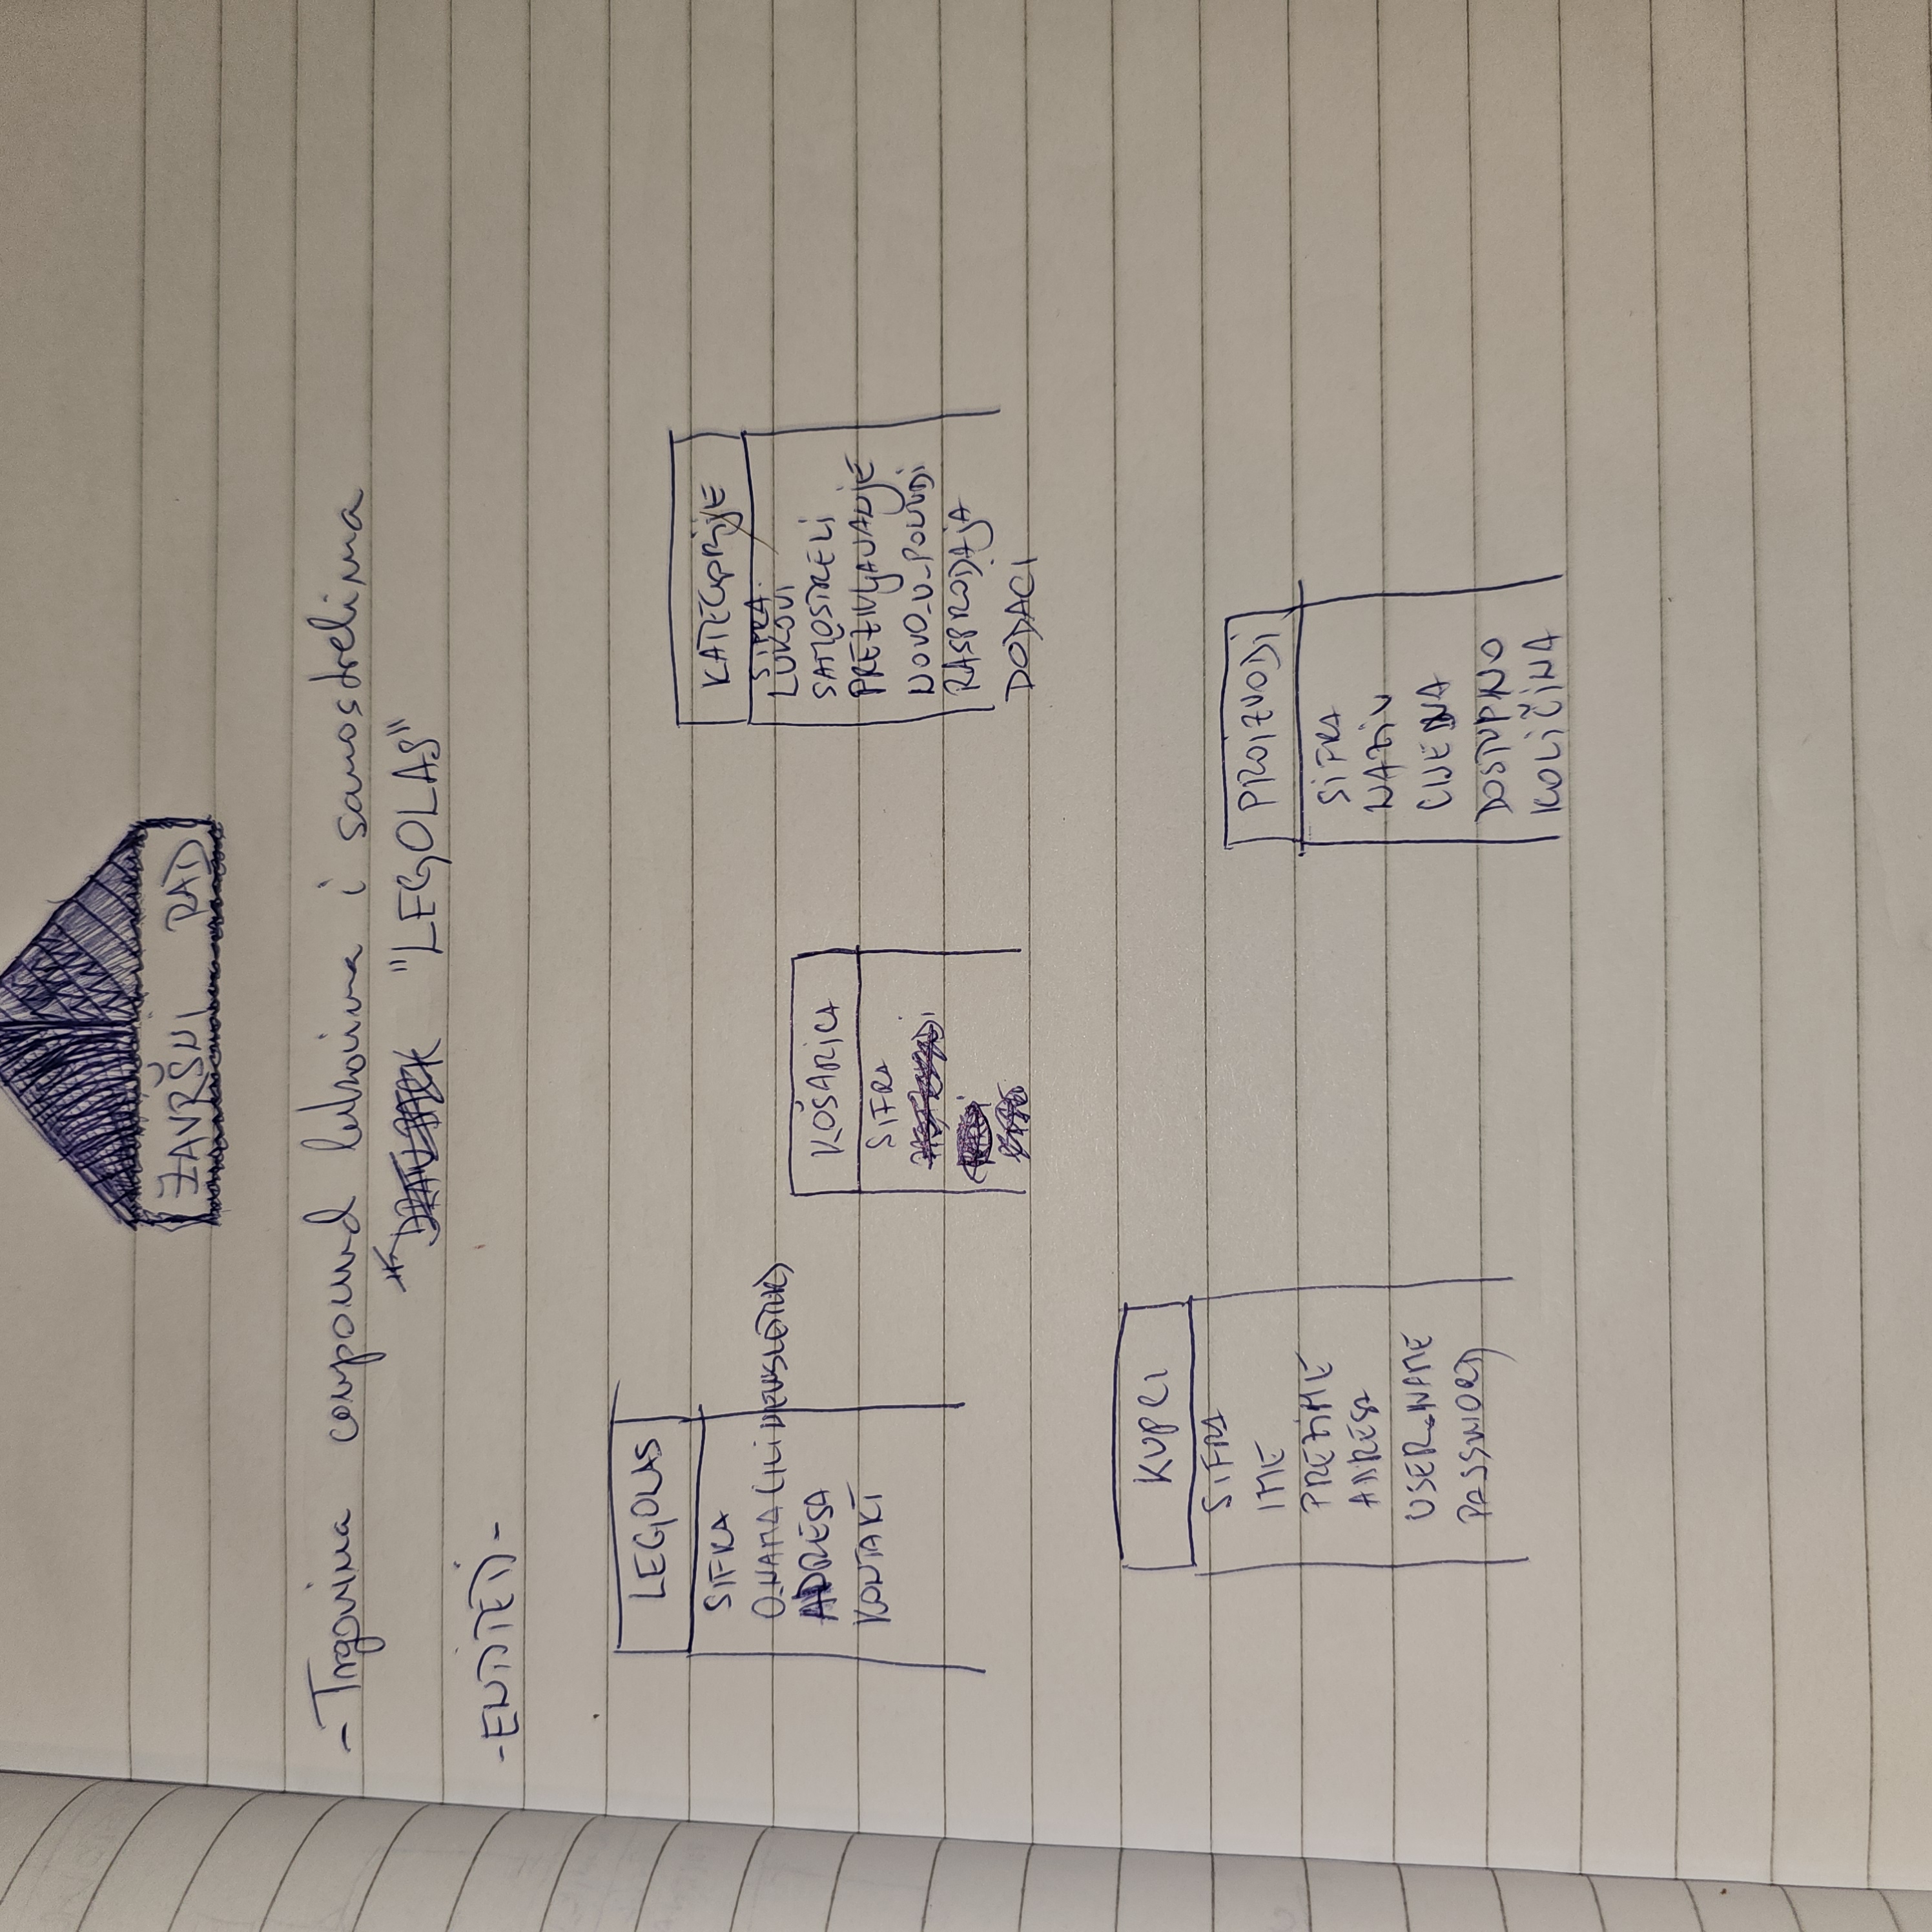 ZAVRŠNI RAD
- Trgovina compound lukovima i samostrelima
"LEGOLAS"
- ENTITETI -
LEGOLAS
SIFRA
O_NAMA (ILI NEWSLETTER)
ADRESA
KONTAKT
KOŠARICA
SIFRA
KATEGORIJE
SIFRA
LUKOVI
SAMOSTRELI
PREŽIVLJAVANJE
NOVO_U_PONUDI
RASPRODAJA
DODACI
KUPCI
SIFRA
IME
PREZIME
ADRESA
USER_NAME
PASSWORD
PROIZVODI
SIFRA
NAZIV
CIJENA
DOSTUPNO
KOLIČINA